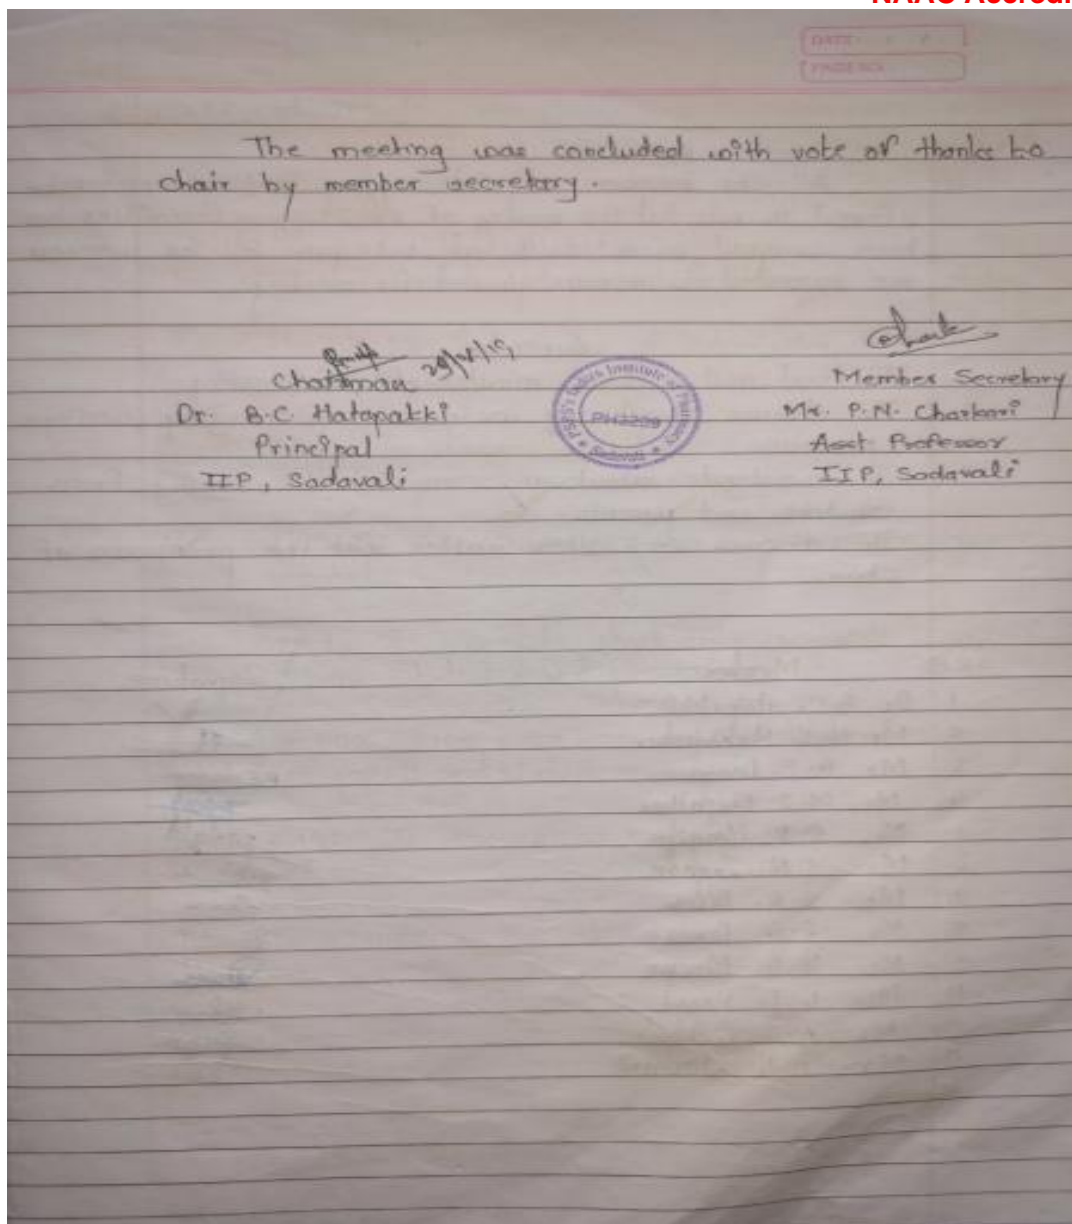 DATE
PAGE NO.
The meeting was concluded with vote of thanks to
chair by member secretary.
Chairman
Dr. B.C. Hatapakki
Principal
IIP, Sadavali
PSPS's Indira Institute of Pharmacy
PH3209
Sadavali
Member Secretary
Mr. P. N. Charkari
Asst Professor
IIP, Sadavali